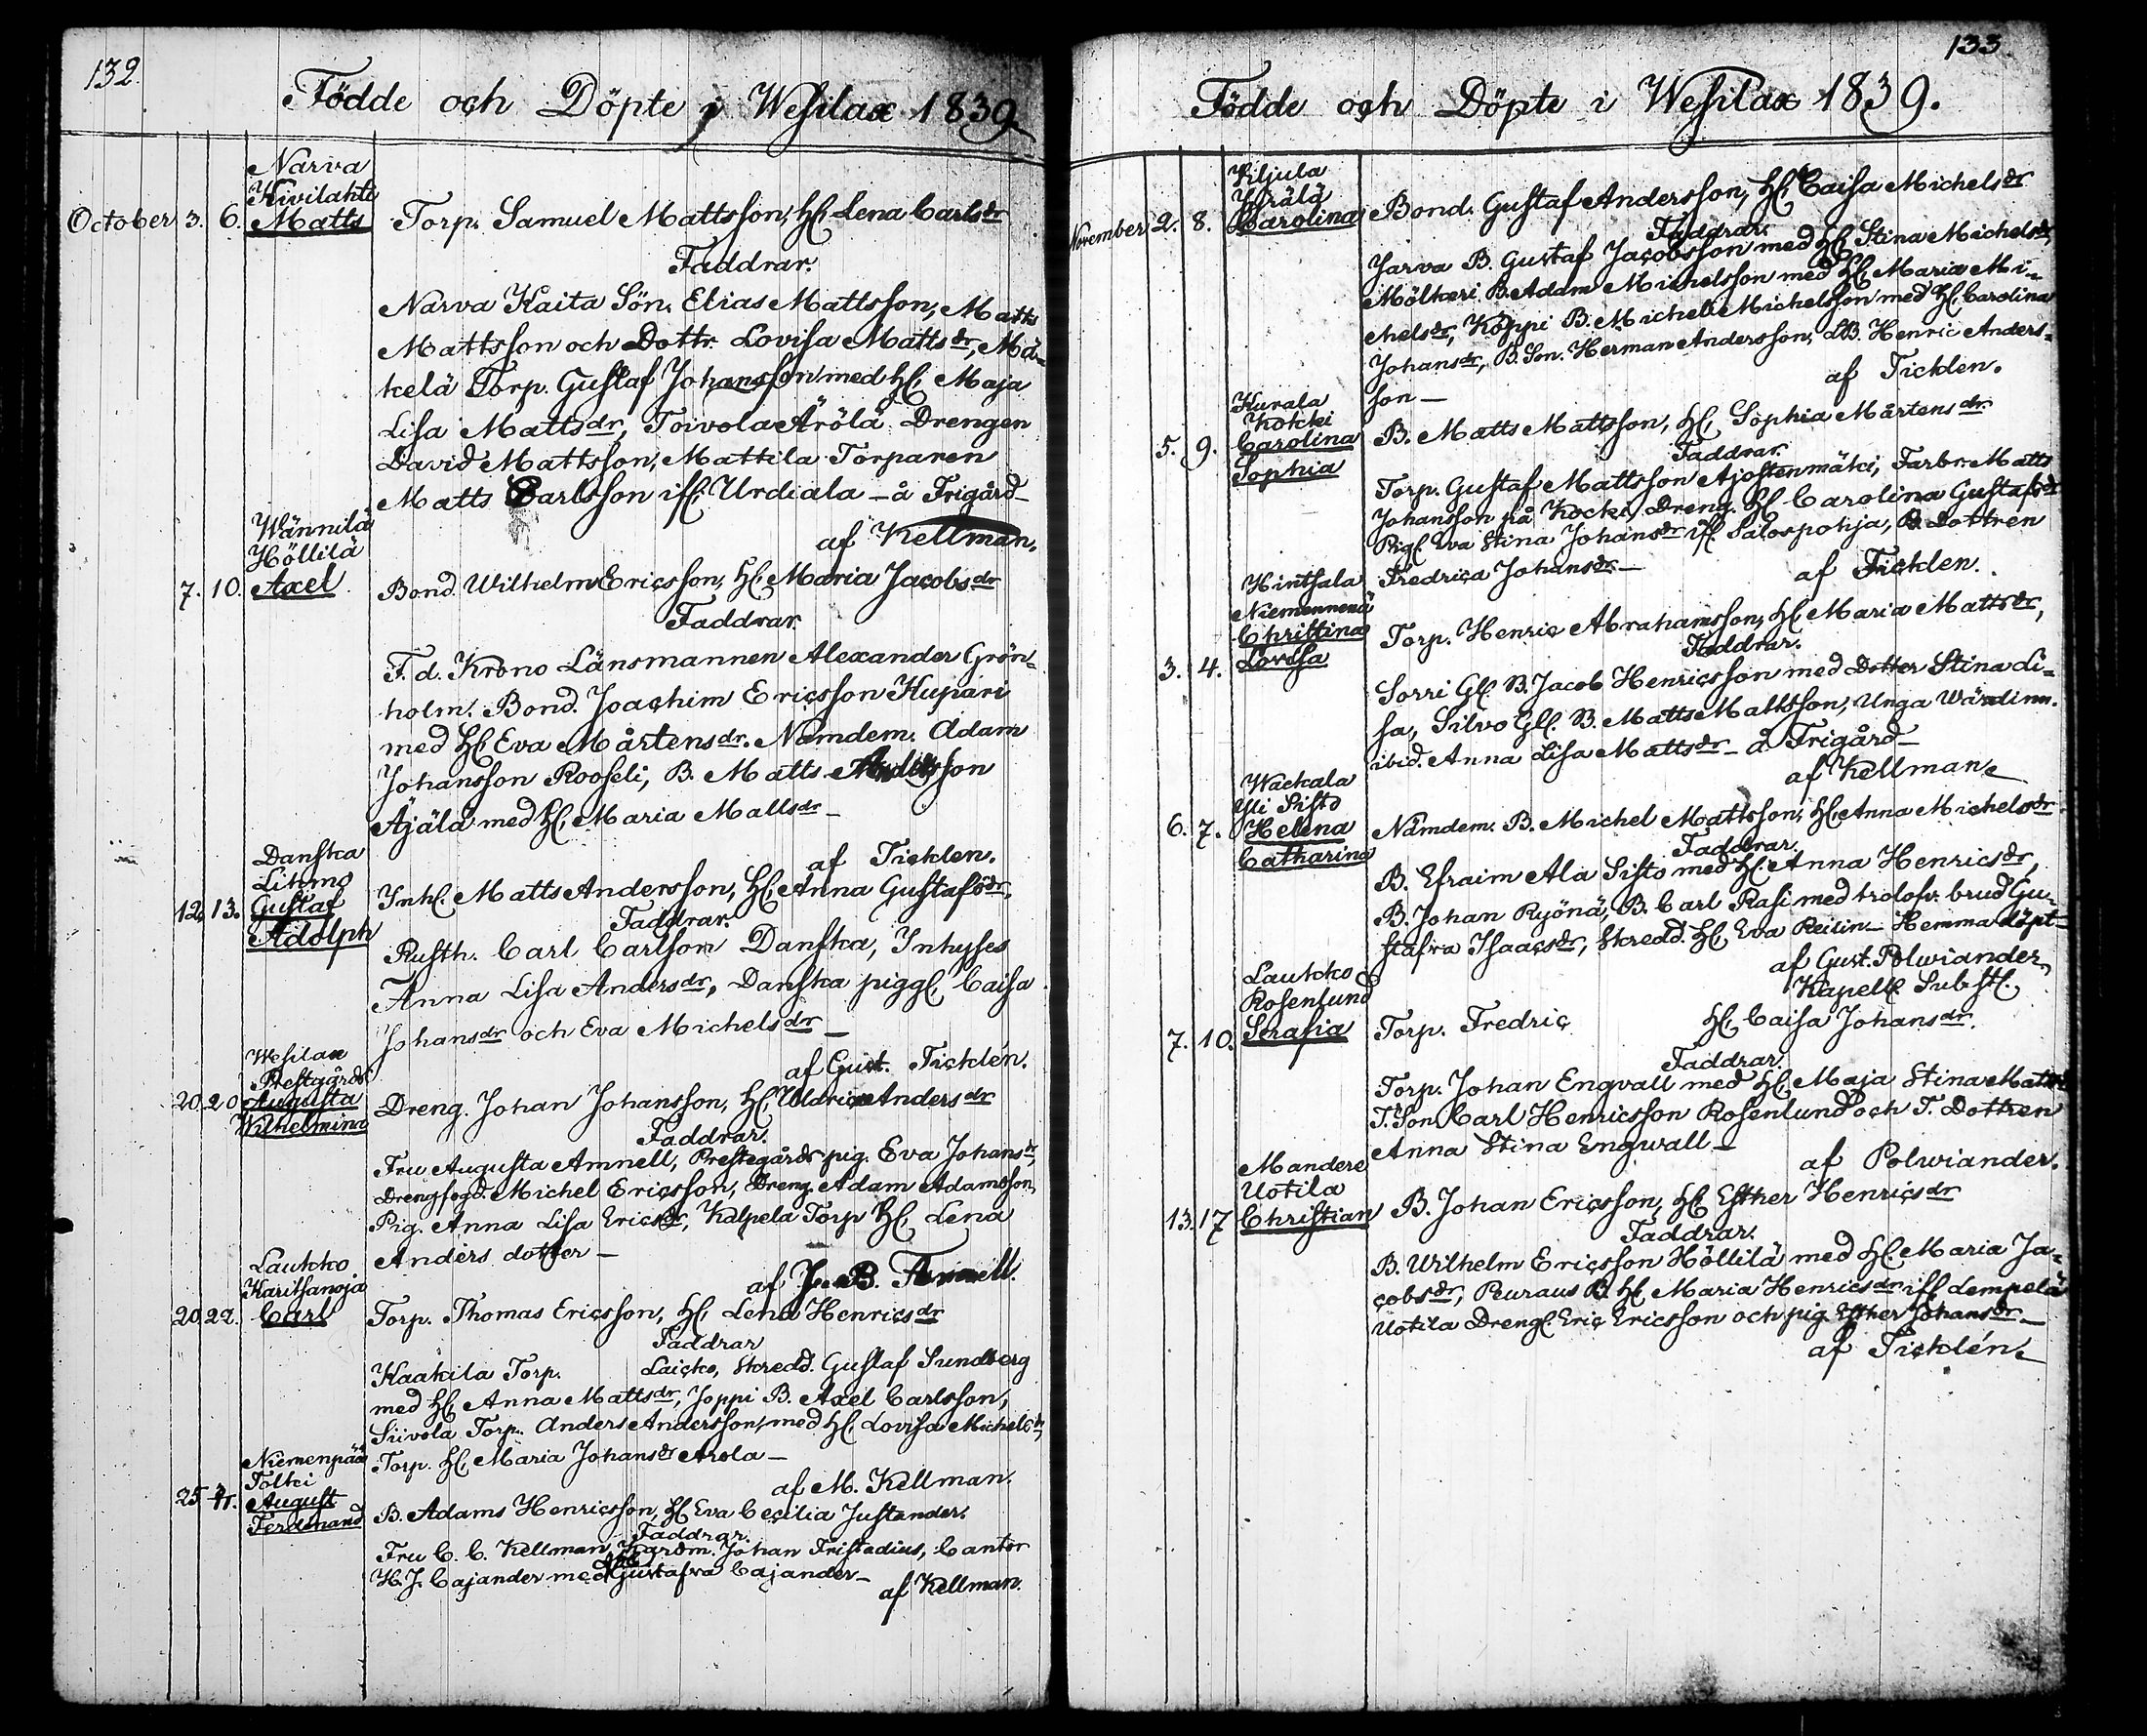 132.
Födde och Döpte i Wesilax 1839
Narva
Kivilahti
October 3. 6. Matts Torp. Samuel Mattsson, H. Lena Carlsdr
Faddrar.
Narva Kaita Sön. Elias Mattsson, Matts
Mattsson och Dottr. Lovisa Mattsdr, Mä-
kelä Torp. Gustaf Johansson med H. Maja
Lisa Mattsdr, Toivola Ärölä Drengen
David Mattsson, Mattila Torparen
Matts Carlsson ifr. Urdiala - å Frigård
af Kellman.
Wännilä
Höllilä
7. 10. Axel Bond. Wilhelm Ericsson, H. Maria Jacobsdr
Faddrar.
F. d. Krono Länsmannen Alexander Grön-
holm. Bond. Joachim Ericsson Kupari
med H. Eva Mårtensdr. Nämdem. Adam
Johansson Rooseli, B. Matts
Äjälä med H. Maria Mattsdr -
af Ticklen.
Danska
Lihmo
12. 13. Gustaf Inh. Matts Andersson, H. Anna Gustafsdr,
Adolph Faddrar.
Rusth. Carl Carlsson Danska, Inhyses
Anna Lisa Andersdr, Danska pigg. Caisa
Johansdr och Eva Michelsdr -
af Gust. Ticklén.
Wesilax
Prestgårds
20. 20 Augusta Dreng. Johan Johansson, H. Uldrica Andersdr
Wilhelmina Faddrar.
Fru Augusta Amnell, Prestegårds pig. Eva Johansdr,
Drengfogd. Michel Ericsson, Dreng. Adam Adamsson,
Pig. Anna Lisa Ericsdr, Kalpela Torp H. Lena
Anders dotter -
af J. B. Amnell.
Laukko
Karitsanoja
20. 22. Carl Torp. Thomas Ericsson, H. Lena Henricsdr
Faddrar
Kaakila Torp. Laicko, Skredd. Gustaf Sundberg
med H. Anna Mattsdr, Joppi B. Axel Carlsson,
Siivola Torp. Anders Andersson, med H. Lovisa Michelsdr
Torp. H. Maria Johansdr Arola -
af M. Kellman.
Niemenpää
Tolki
25 August B. Adams Henricsson, H. Eva Cecilia Justander.
Ferdinand Faddrar.
Fru C. C. Kellman, Johan Fristadius, Cantor
H. J. Cajander med Gustafva Cajander -
af Kellman.
133.
Födde och Döpte i Wesilax 1839.
Kiljula
Yrälä
November 2. 8. Carolina Bond. Gustaf Andersson, H. Caisa Michelsdr
Faddrar.
Jarva B. Gustaf Jacobsson med H. Stina Michelsdr,
Mölkeri B. Adam Michelsson med H. Maria Mi-
chelsdr, Koppi B. Michel Michelsson med H. Carolina
Johansdr, B. Son. Herman Andersson, Henric Anders-
son -
af Ticklen.
Kurala
Kokki
5. 9. Carolina B. Matts Mattsson, H. Sophia Mårtensdr.
Sophia Faddrar.
Torp. Gustaf Mattsson Ajostenmäki, Farbr. Matts
Johansson på Kocki, Dreng. H. Carolina Gustafsdr
Pig. Eva Stina Johansdr ifr. Salospohja, B. Dottren
Fredrica Johansdr. -
af Ticklen.
Hinthala
Niemennenä
Christina Torp. Henric Abrahamsson, H. Maria Mattsdr,
3. 4. Lovisa Faddrar.
Sorri Gl. B. Jacob Henricsson med Dotter Stina Li-
sa, Silvo Gl. B. Matts Mattsson, Unga Wärdinn.
ibid. Anna Lisa Mattsdr - å Frigård -
af Kellman
Wackala
Yli Sisto
6. 7. Helena Nämdem. B. Michel Mattsson, H. Anna Michelsdr.
Catharina Faddrar.
B. Efraim Ala Sisto med H. Anna Henricsdr,
B. Johan Ryönä, B. Carl Rasi med trolofv. brud Gu-
stafva Isaacsdr, Skredd. H. Eva Reilin - Hemma döpt -
af Gust. Polwiander,
Kapells Subst.
Laukko
Rosenlund
7. 10. Serafia Torp. Fredric H. Caisa Johansdr.
Faddrar.
Torp. Johan Engvall med H. Maja Stina Mattsdr
T. Son Carl Henricsson Rosenlund och T. Dottren
Anna Stina Engwall -
af Polwiander.
Mandere
Uotila
13. 17 Christian B. Johan Ericsson, H. Esther Henricsdr
Faddrar.
B. Wilhelm Ericsson Höllilä med H. Maria Ja-
cobsdr, Peuraus B. H. Maria Henricsdr ifr. Lempelä
Uotila Dreng. Eric Ericsson och pig. Esther Johansdr -
af Ticklén.